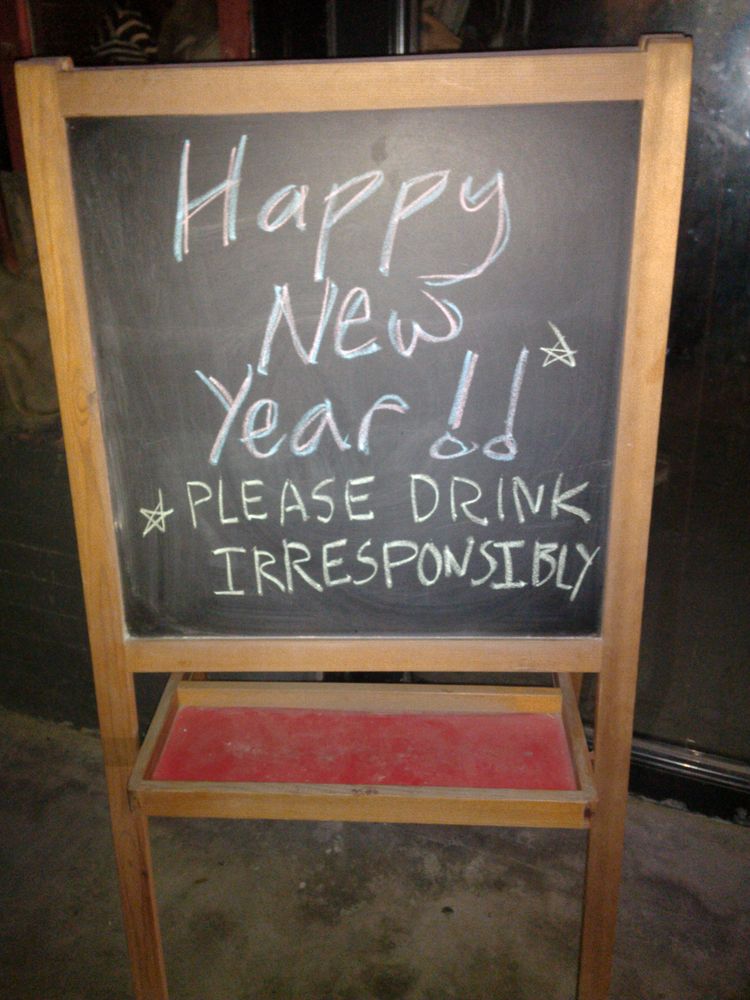 Happy
New
Year!!
PLEASE DRINK
IRRESPONSIBLY